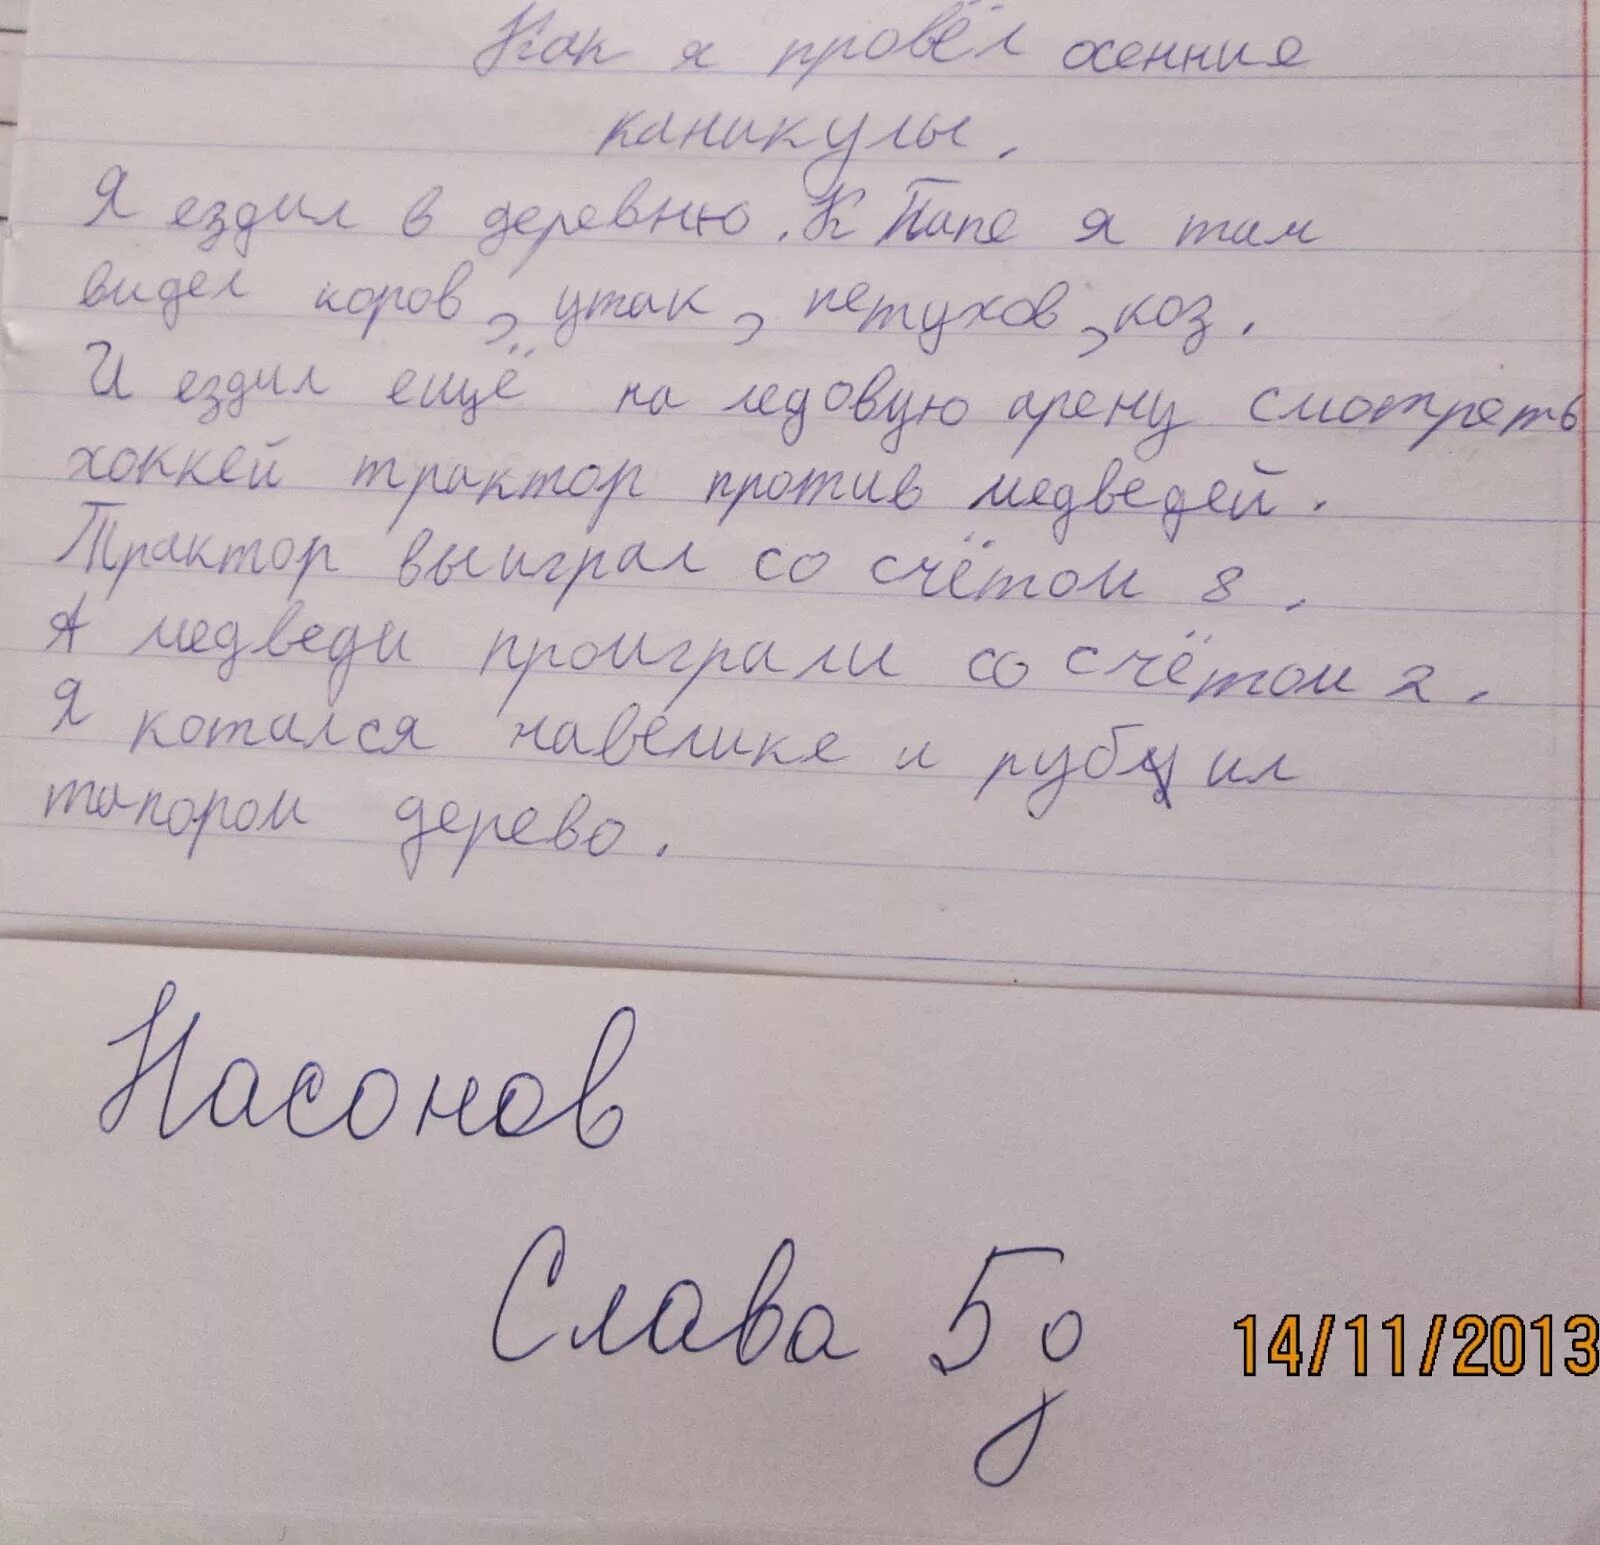 Как я провёл осенние
каникулы.
Я ездил в деревню. К Папе я там
видел коров, утак, петухов, коз.
И ездил ещё на ледовую арену смотреть
хоккей трактор против медведей.
Трактор выиграл со счётом 8.
А медведи проиграли со счётом 2.
Я котался навелике и рубил
тапором дерево.
Насонов
Слава 5д
14/11/2013